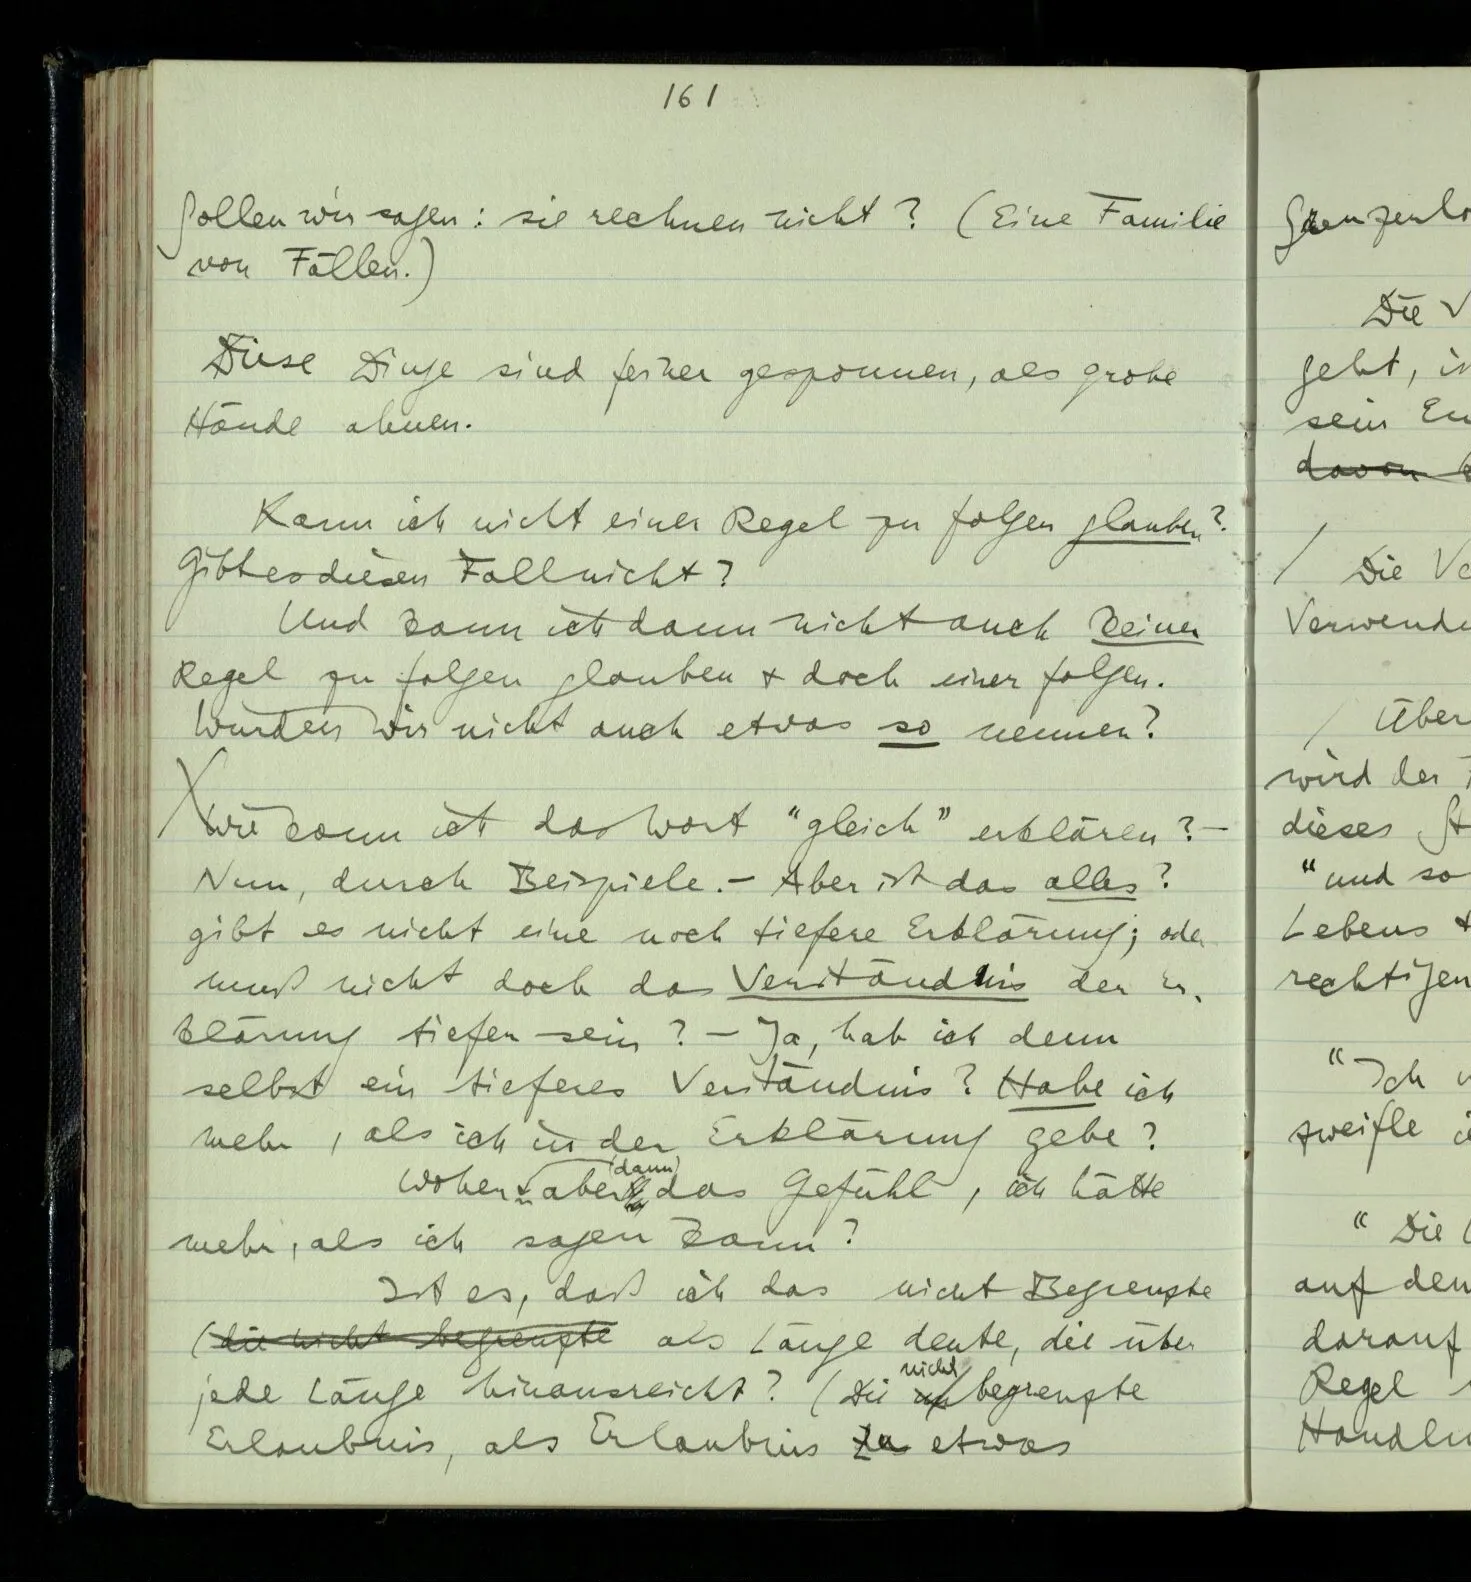 161
Sollen wir sagen: sie rechnen nicht? (Eine Familie
von Fällen.)
Diese Dinge sind feiner gesponnen, als grobe
Hände ahnen.
Kann ich nicht einer Regel zu folgen glauben?
Gibt es diesen Fall nicht?
Und kann ich dann nicht auch keiner
Regel zu folgen glauben & doch einer folgen.
Würden wir nicht auch etwas so nennen?
Wie kann ich das Wort “gleich” erklären? –
Nun, durch Beispiele. – Aber ist das alles?
gibt es nicht eine noch tiefere Erklärung; oder
muß nicht doch das Verständnis der Er-
klärung tiefer sein? – Ja, hab ich denn
selbst ein tieferes Verständnis? Habe ich
mehr, als ich in der Erklärung gebe?
Woher aber (dann) das Gefühl, ich hätte
mehr, als ich sagen kann?
Ist es, daß ich das nicht Begrenzte
(die nicht begrenzte als Länge deute, die über
jede Länge hinausreicht? (Die nicht begrenzte
Erlaubnis, als Erlaubnis zu etwas
Die V
geht, i
sein En
davon
/ Die Ve
Verwend
/ Über
wird der
dieses
“und so
Lebens &
rechtigen
“Ich
zweifle
“Die
auf den
darauf
Regel
Handlu